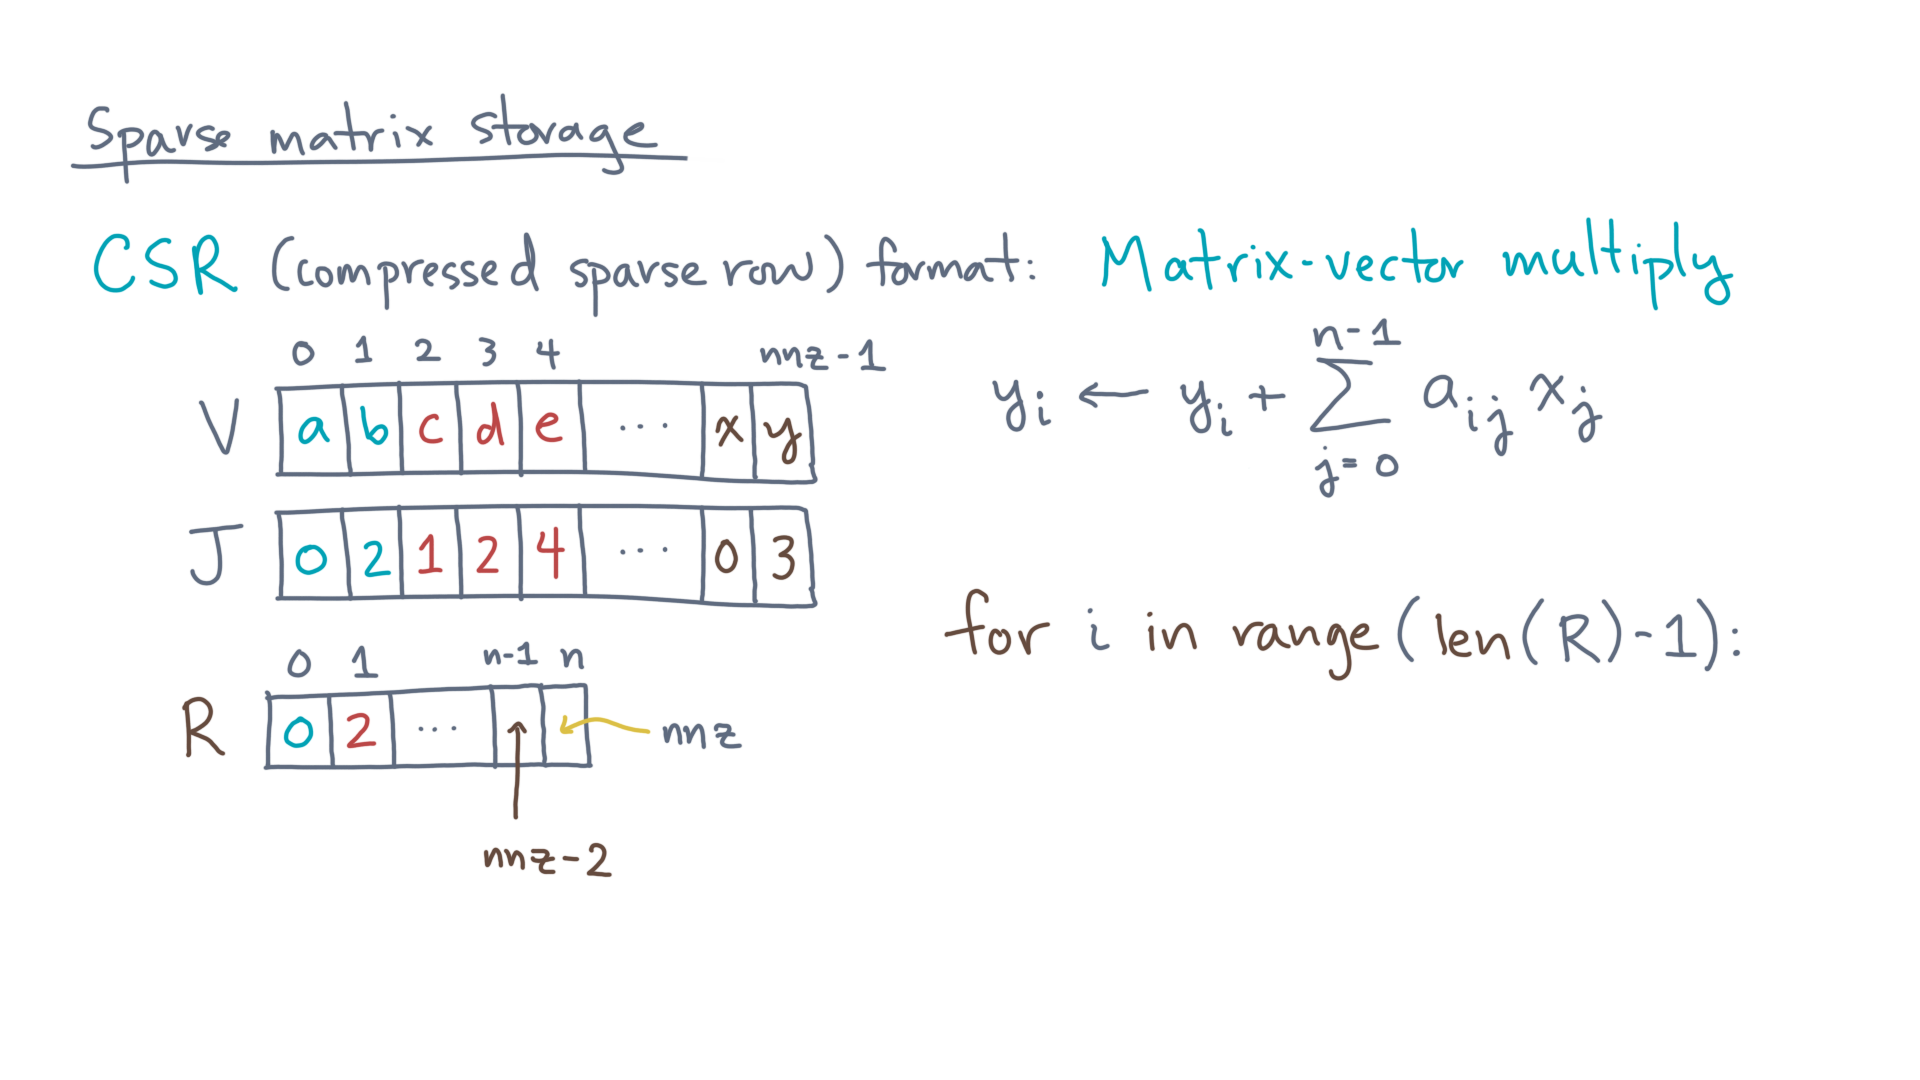 Sparse matrix storage
CSR (compressed sparse row) format: Matrix-vector multiply
0 1 2 3 4 nnz-1
V a b c d e ... x y
J 0 2 1 2 4 ... 0 3
0 1 n-1 n
R 0 2 ... nnz
nnz-2
n-1
y_i ← y_i + Σ a_ij x_j
j=0
for i in range(len(R)-1):